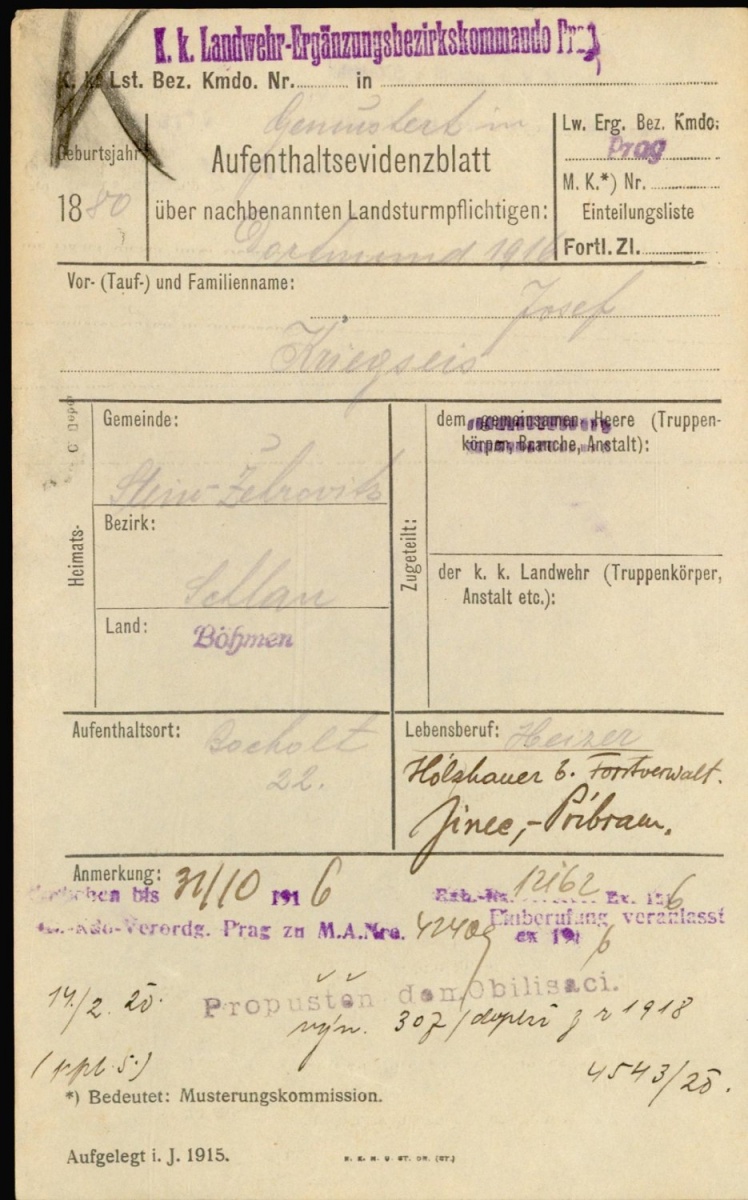 K. k. Landwehr-Ergänzungsbezirkskommando Prag
K
K. k. Lst. Bez. Kmdo. Nr. in
Gemustert in
Geburtsjahr
1880
Aufenthaltsevidenzblatt
über nachbenannten Landsturmpflichtigen:
Dortmund 1916
Lw. Erg. Bez. Kmdo:
Prag
M. K.*) Nr.
Einteilungsliste
Fortl. Zl.
Vor- (Tauf-) und Familienname:
Josef
Kriegseis
Heimats-
Gemeinde:
Stein-Žehrovitz
Bezirk:
Schlan
Land:
Böhmen
Zugeteilt:
dem gemeinsamen Heere (Truppen-
körper, Branche, Anstalt):
der k. k. Landwehr (Truppenkörper,
Anstalt etc.):
Aufenthaltsort:
Bocholt
22.
Lebensberuf: Heizer
Holzhauer b. Forstverwalt.
Jinec,-Příbram.
Anmerkung:
bis 31/10 1916
Exh.-Nr. 12162 Ex. 1916
Verordg. Prag zu M.A.Nro. 42409
Einberufung veranlasst
ex 1916
14/2. 25.
Propuštěn demobilisací.
výn. 307/dopl z r 1918
4543/25.
*) Bedeutet: Musterungskommission.
Aufgelegt i. J. 1915.